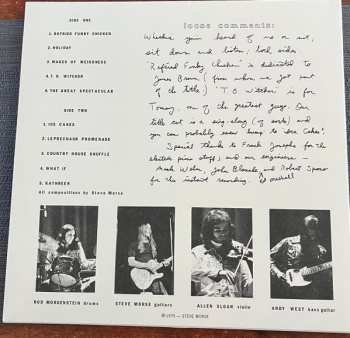 SIDE ONE
1. REFRIED FUNKY CHICKEN
2. HOLIDAY
3. WAGES OF WEIRDNESS
4. T.O. WITCHER
5. THE GREAT SPECTACULAR
SIDE TWO
1. ICE CAKES
2. LEPRECHAUN PROMENADE
3. COUNTRY HOUSE SHUFFLE
4. WHAT IF
5. KATHREEN
All compositions by Steve Morse
loose comments:
Whether you've heard of me or not,
sit down and listen; both sides.
"Refried Funky Chicken" is dedicated to
James Brown (from whom we got part
of the title.) "T.O. Witcher" is for
Tommy, one of the greatest guys. Our
title cut is a sing-along (of sorts) and
you can probably even bump to "Ice Cakes".
Special thanks to Frank Josephs for the
electric piano stuff; and our engineers –
John Blanche, and Robert Spano
for the instant recording.
ROD MORGENSTEIN drums
STEVE MORSE guitars
ALLEN SLOAN violin
ANDY WEST bass guitar
© 1975 — STEVE MORSE